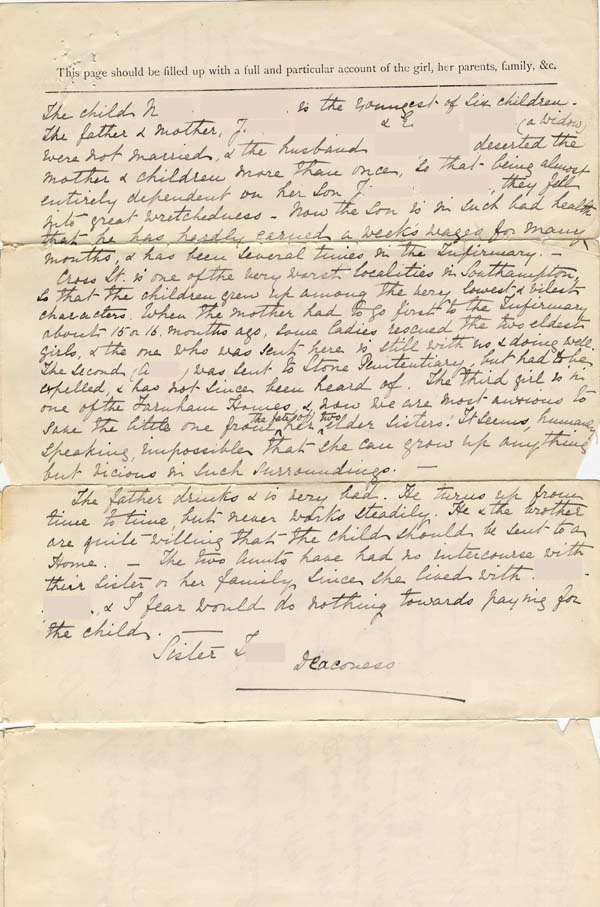 This page should be filled up with a full and particular account of the girl, her parents, family, &c.
The child N is the youngest of six children.
The father & mother, J. & E. (a widow)
were not married, & the husband deserted the
mother & children more than once, so that being almost
entirely dependent on her son J. , they fell
into great wretchedness - Now the son is in such bad health
that he has hardly earned a weeks wages for many
months, & has been several times in the Infirmary. -
Cross St. is one of the very worst localities in Southampton,
so that the children grew up among the very lowest & vilest
characters. When the mother had to go first to the Infirmary
about 15 or 16 months ago, some ladies rescued the two eldest
girls, & the one who was sent here is still with us & doing well.
The second (A ) was sent to Stone Penitentiary, but had to be
expelled, & has not since been heard of. The third girl is in
one of the Farnham Homes, & now we are most anxious to
save the little one from the fate of her two elder sisters. It seems, humanly
speaking, impossible that she can grow up anything
but vicious in such surroundings. -
The father drinks & is very bad. He turns up from
time to time, but never works steadily. He & the brother
are quite willing that the child should be sent to a
Home. - The two Aunts have had no intercourse with
their sister or her family since she lived with
, & I fear would do nothing towards paying for
the child. -
Sister L Deaconess